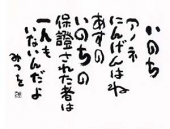 いのち
アノネ
にんげんはね
あすの
いのちの
保證された者は
一人も
いないんだよ
みつを